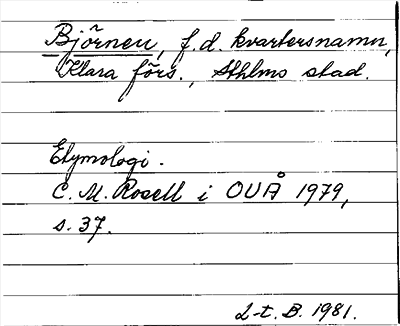 Björnen, f.d. kvartersnamn,
Klara förs., Sthlms stad.
Etymologi.
C. M. Rosell i OUÅ 1979,
s. 37.
L-t. B. 1981.